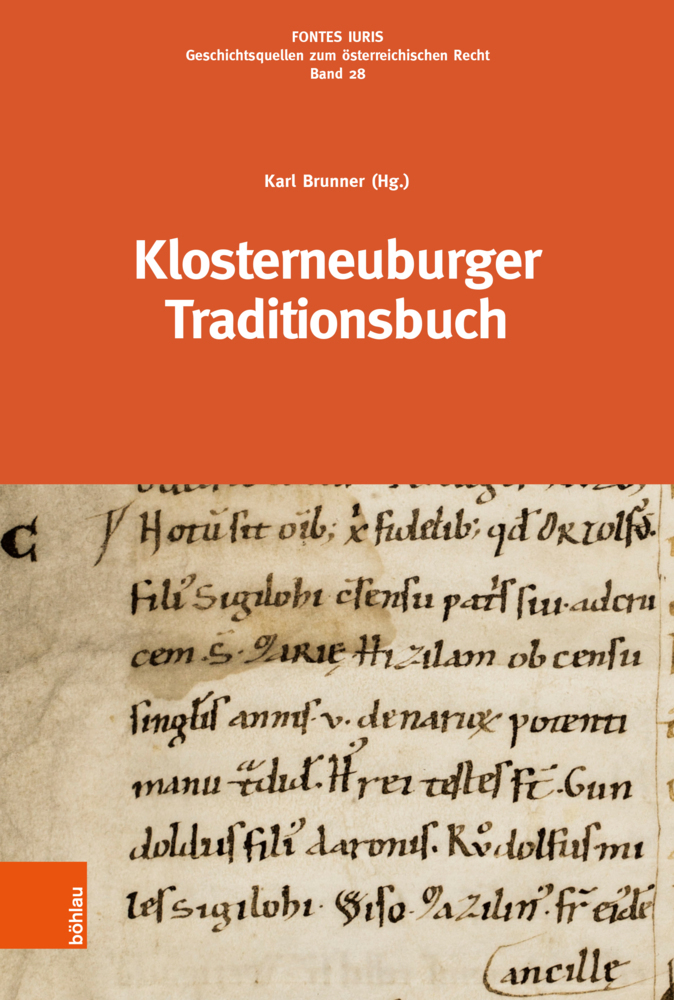 FONTES IURIS
Geschichtsquellen zum österreichischen Recht
Band 28
Karl Brunner (Hg.)
Klosterneuburger
Traditionsbuch
C
Hotū sit oīb; xp̄ fidelib; qd̄ Ortolf᷒
filī Sigilohi c̄sensu pat̄s sui. ad cru
cem. S. MARIĘ Hizilam ob censū
singl̄is annis. v. denariox potenti
manu t̄did̄. Hꝰ rei testes st̄. Gun
doldus filī aaronis. Růdolfus mi
les sigilohi. Giso. Mazilinꝰ. fr̄ eiꝰdē
ancillę
böhlau